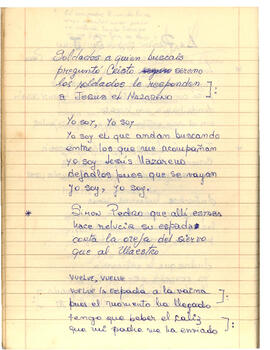 Soldados a quien buscais
preguntó Cristo sereno
los soldados le respondon
a Jesus el Nazareno
Yo soy, Yo soy
Yo soy el que andan buscando
entre los que me acompañan
yo soy Jesús Nazareno
dejadlos pues que se vayan
yo soy, yo soy.
* Simon Pedro que allí
hace relucia su espada
corta la oreja del siervo
que al Maestro
vuelve, vuelve
vuelve la espada a la vaina
pues el momento ha llegado
tengo que beber el caliz
que mi padre me ha enviado